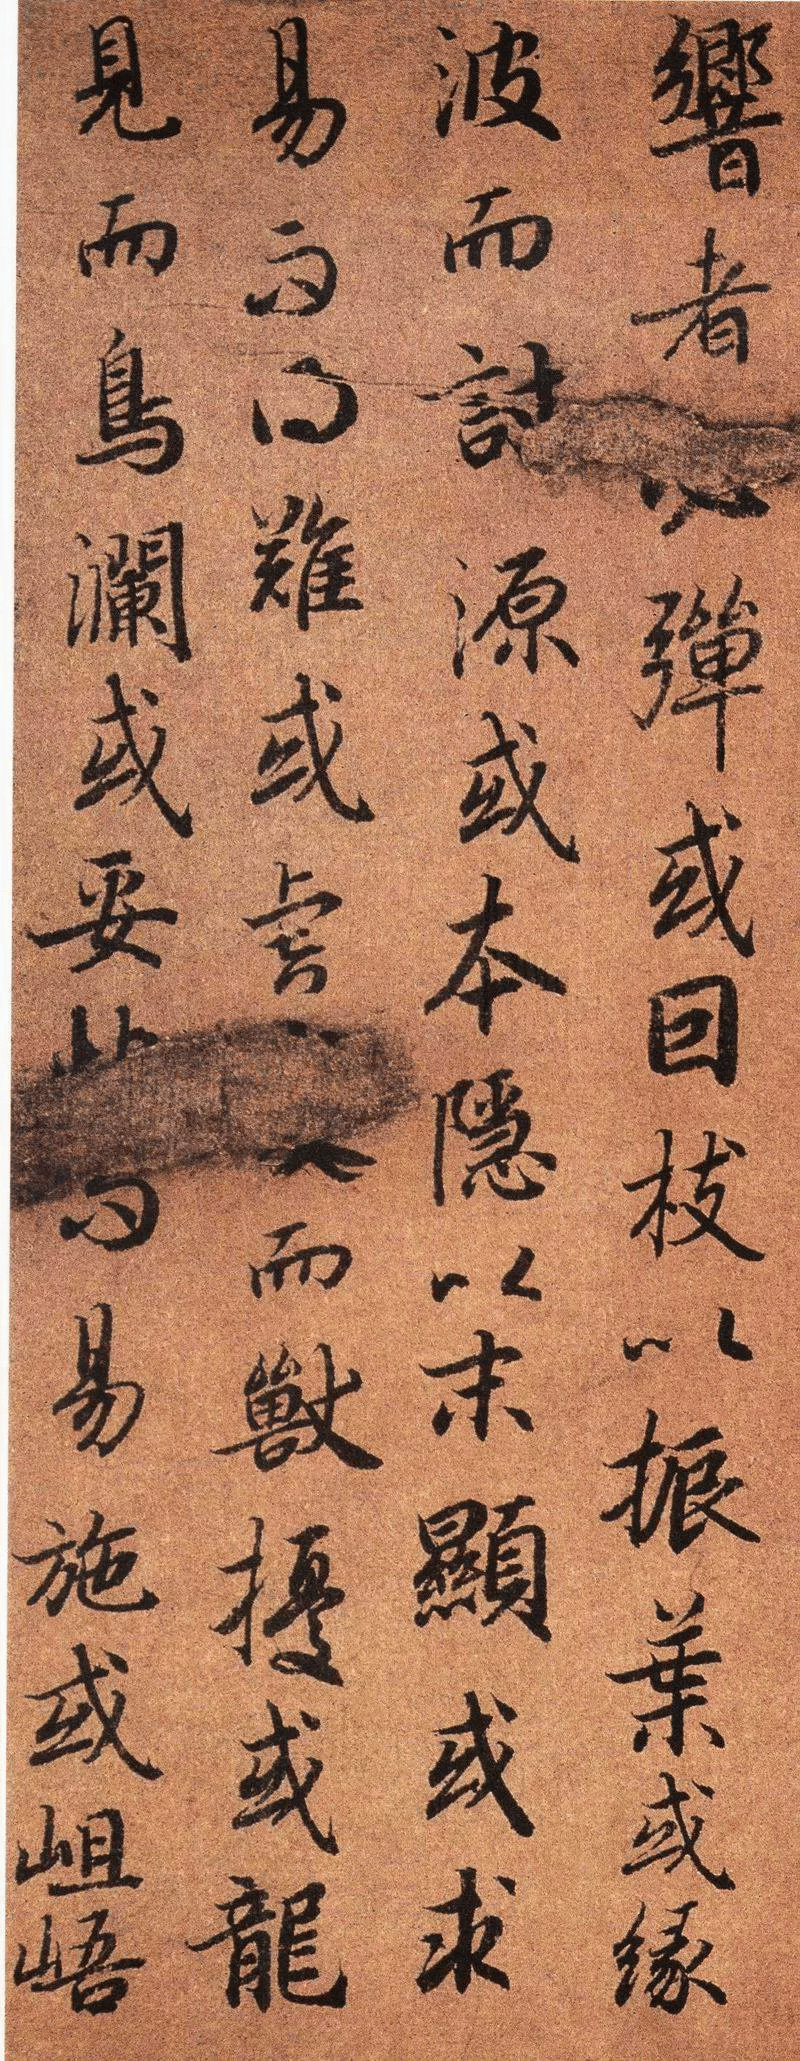 響者彈或囙枝以振葉或緣
波而討源或本隱以末顯或求
易而得難或虎而獸擾或龍
見而鳥瀾或妥而易施或岨峿